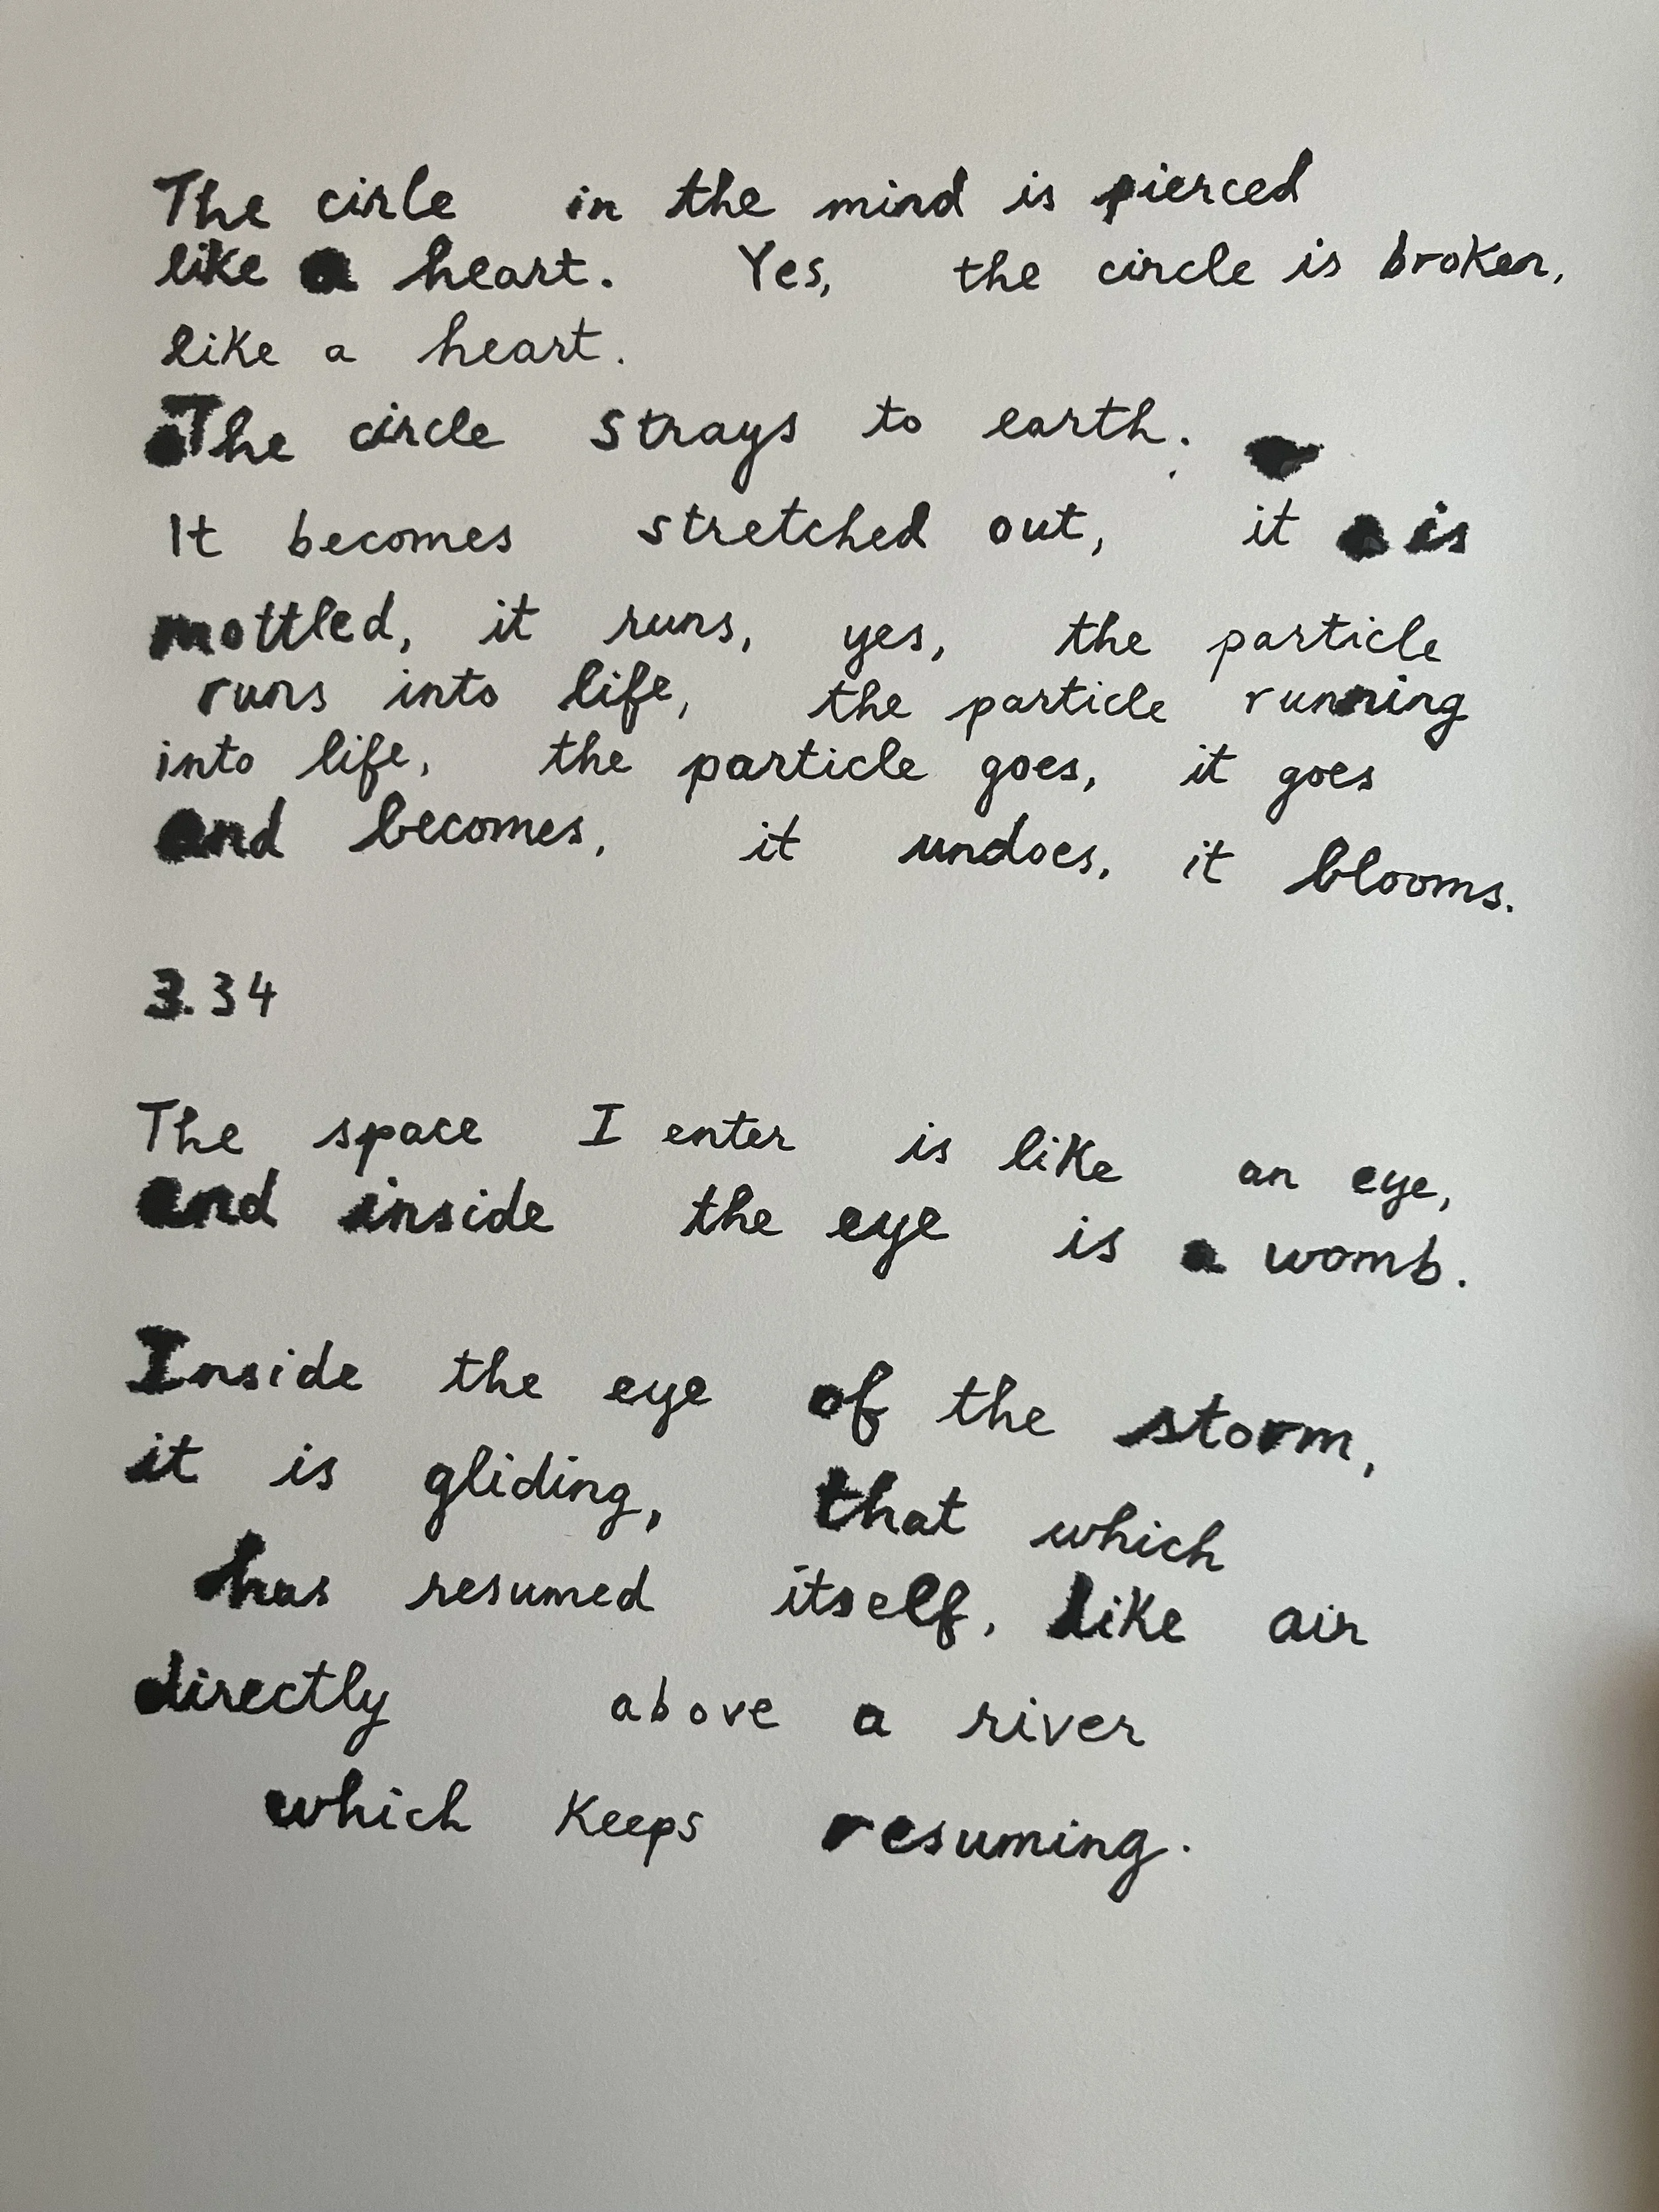 The cirle in the mind is pierced
like a heart. Yes, the circle is broken,
like a heart.
The circle strays to earth.
It becomes stretched out, it is
mottled, it runs, yes, the particle
runs into life, the particle running
into life, the particle goes, it goes
and becomes, it undoes, it blooms.
3.34
The space I enter is like an eye,
and inside the eye is a womb.
Inside the eye of the storm,
it is gliding, that which
has resumed itself, like air
directly above a river
which keeps resuming.